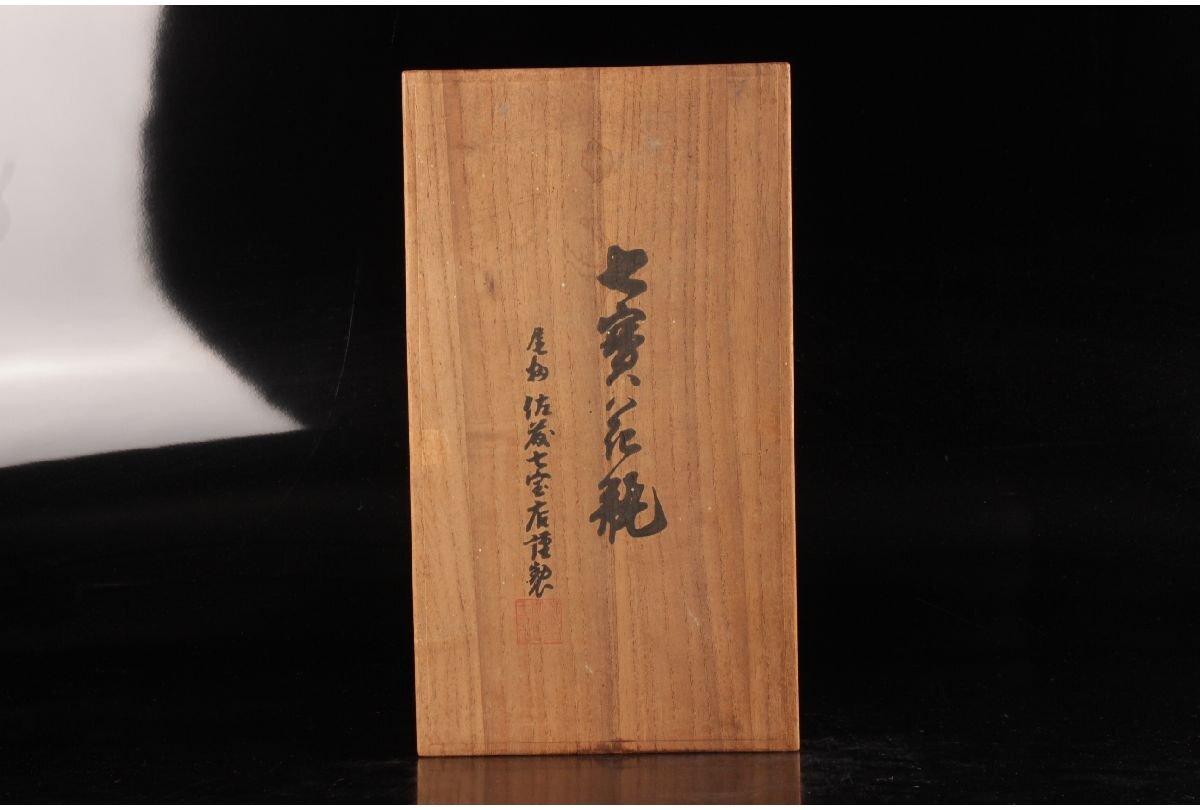 七寳花瓶
尾州 佐藤七宝店謹製